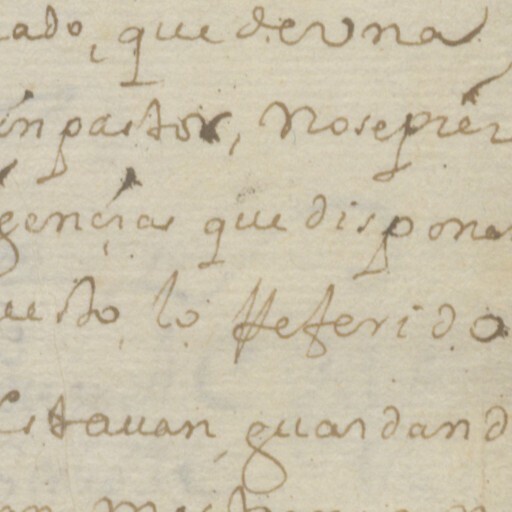 ado, que deuna
in pastor, no se pier
gençias que dispone
uesto lo Referido
Estauan guardand